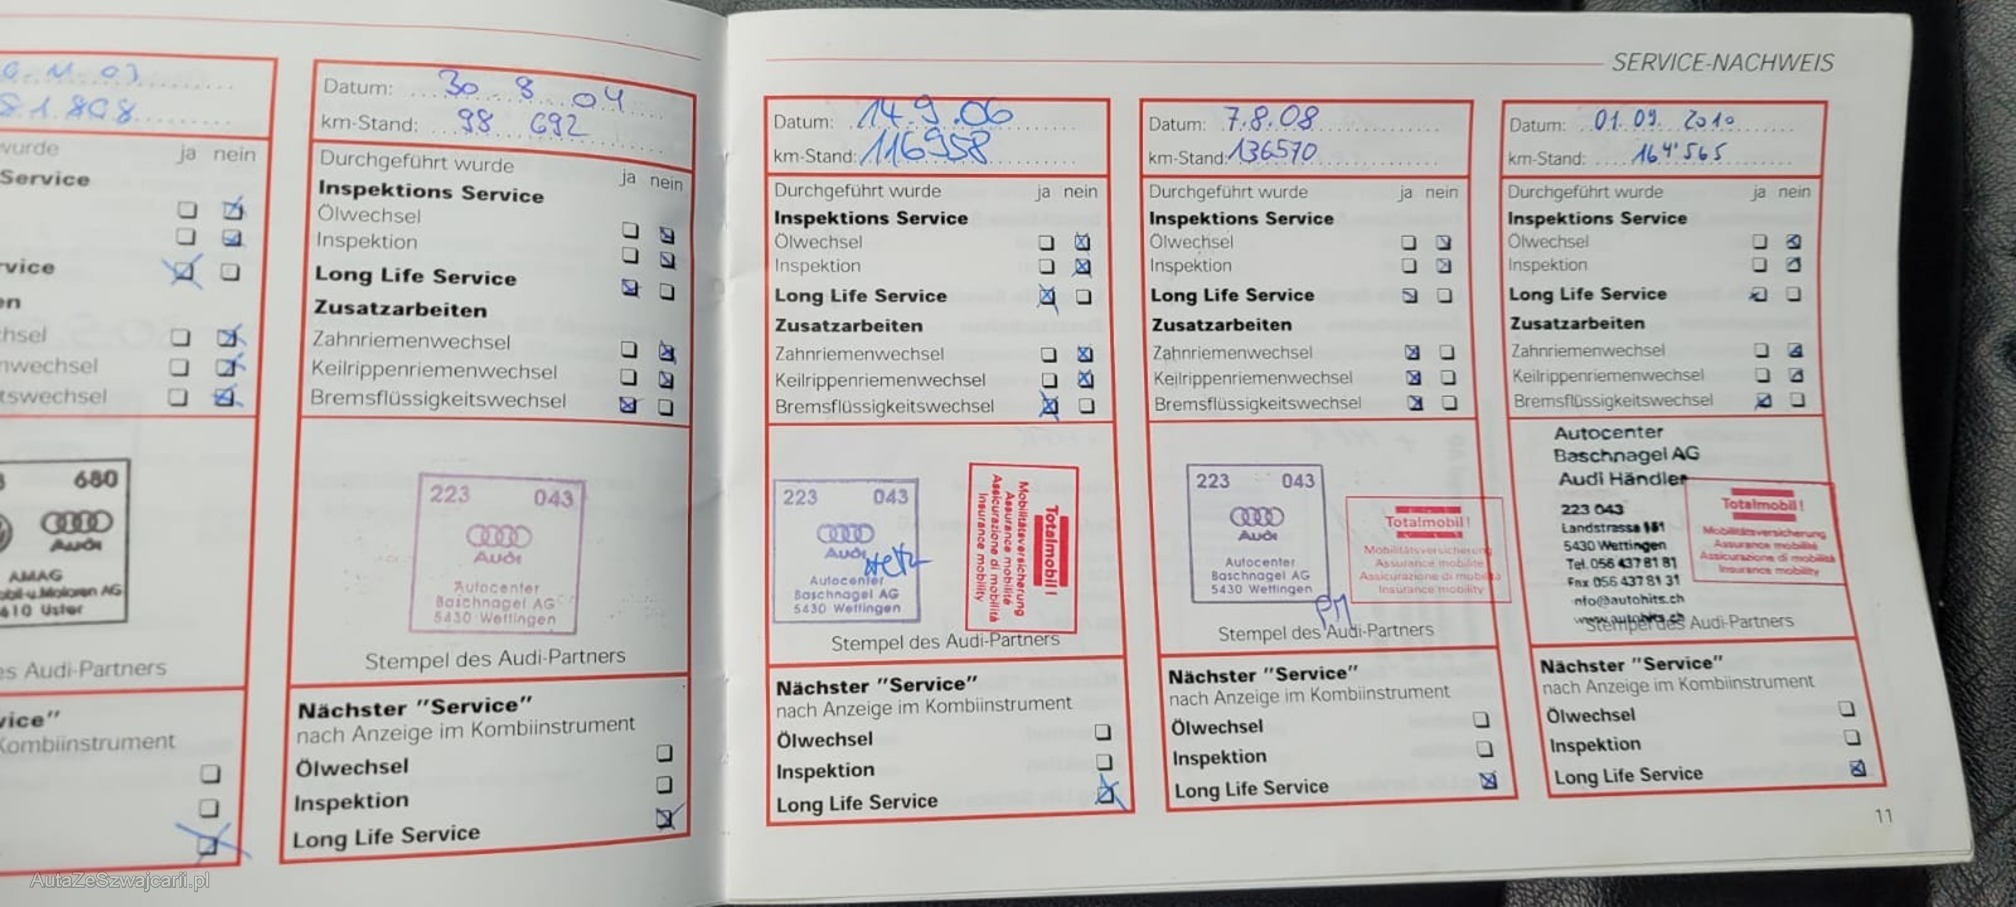 SERVICE-NACHWEIS
81.808
wurde ja nein
Service
vice
en
hsel
nwechsel
tswechsel
680
Audi
AMAG
Uster
es Audi-Partners
vice"
Kombiinstrument
Datum: 30 8 04
km-Stand: 98 692
Durchgeführt wurde ja nein
Inspektions Service
Ölwechsel
Inspektion
Long Life Service
Zusatzarbeiten
Zahnriemenwechsel
Keilrippenriemenwechsel
Bremsflüssigkeitswechsel
223 043
Audi
Autocenter
Baschnagel AG
5430 Wettingen
Stempel des Audi-Partners
Nächster "Service"
nach Anzeige im Kombiinstrument
Ölwechsel
Inspektion
Long Life Service
Datum: 14.9.06
km-Stand: 116958
Durchgeführt wurde ja nein
Inspektions Service
Ölwechsel
Inspektion
Long Life Service
Zusatzarbeiten
Zahnriemenwechsel
Keilrippenriemenwechsel
Bremsflüssigkeitswechsel
223 043
Audi
Autocenter
Baschnagel AG
5430 Wettingen
Totalmobil!
Mobilitätsversicherung
Assurance mobilité
Assicurazione di mobilità
Insurance mobility
Stempel des Audi-Partners
Nächster "Service"
nach Anzeige im Kombiinstrument
Ölwechsel
Inspektion
Long Life Service
Datum: 7.8.08
km-Stand: 136570
Durchgeführt wurde ja nein
Inspektions Service
Ölwechsel
Inspektion
Long Life Service
Zusatzarbeiten
Zahnriemenwechsel
Keilrippenriemenwechsel
Bremsflüssigkeitswechsel
223 043
Audi
Autocenter
Baschnagel AG
5430 Wettingen
Totalmobil!
Mobilitätsversicherung
Assurance mobilité
Assicurazione di mobilità
Insurance mobility
Stempel des Audi-Partners
Nächster "Service"
nach Anzeige im Kombiinstrument
Ölwechsel
Inspektion
Long Life Service
Datum: 01.09.2010
km-Stand: 164'565
Durchgeführt wurde ja nein
Inspektions Service
Ölwechsel
Inspektion
Long Life Service
Zusatzarbeiten
Zahnriemenwechsel
Keilrippenriemenwechsel
Bremsflüssigkeitswechsel
Autocenter
Baschnagel AG
Audi Händler
223 043
Landstrasse 181
5430 Wettingen
Tel. 056 437 81 81
Fax 056 437 81 31
nfo@autohits.ch
www.autohits.ch
Totalmobil!
Mobilitätsversicherung
Assurance mobilité
Assicurazione di mobilità
Insurance mobility
Stempel des Audi-Partners
Nächster "Service"
nach Anzeige im Kombiinstrument
Ölwechsel
Inspektion
Long Life Service
11
AutaZeSzwajcarii.pl